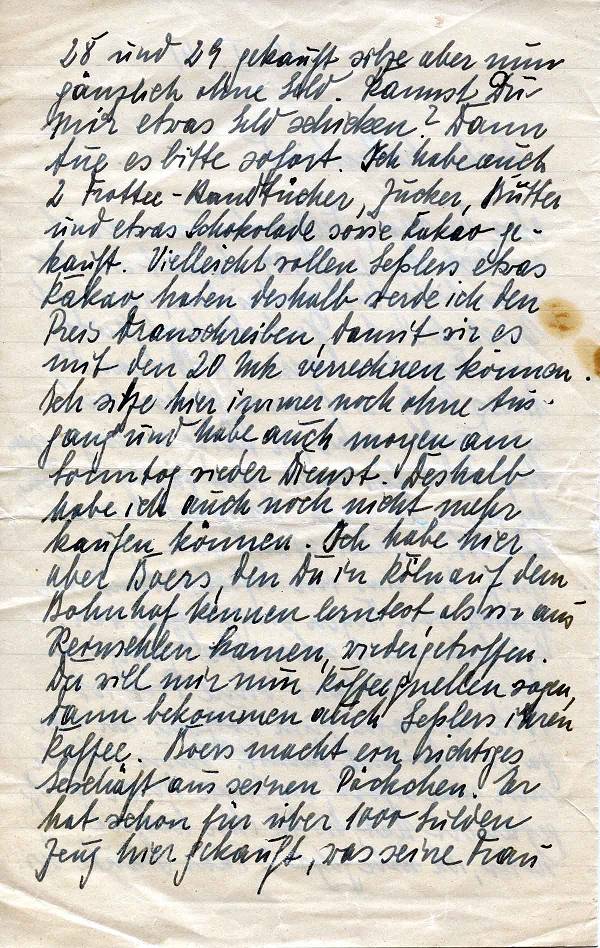 28 und 29 gekauft sitze aber nun
gänzlich ohne Geld. Kannst Du
mir etwas Geld schicken? Dann
tue es bitte sofort. Ich habe auch
2 Frottee-Handtücher, Zucker, Butter
und etwas Schokolade sowie Kakao ge-
kauft. Vielleicht wollen Geßlers etwas
Kakao haben deshalb werde ich den
Preis dranschreiben, damit wir es
mit den 20 Mk verrechnen können.
Ich sitze hier immer noch ohne Aus-
gang und habe auch morgen am
Sonntag wieder Dienst. Deshalb
habe ich auch noch nicht mehr
kaufen können. Ich habe hier
aber Boers, den Du in Köln auf dem
Bahnhof kennen lerntest als wir aus
kamen, wiedergetroffen.
Der will mir nun Kaffeequellen sagen,
dann bekommen auch Geßlers ihren
Kaffee. Boers macht ein richtiges
Geschäft aus seinen Päckchen. Er
hat schon für über 1000 Gulden
Zeug hier gekauft, was seine Frau